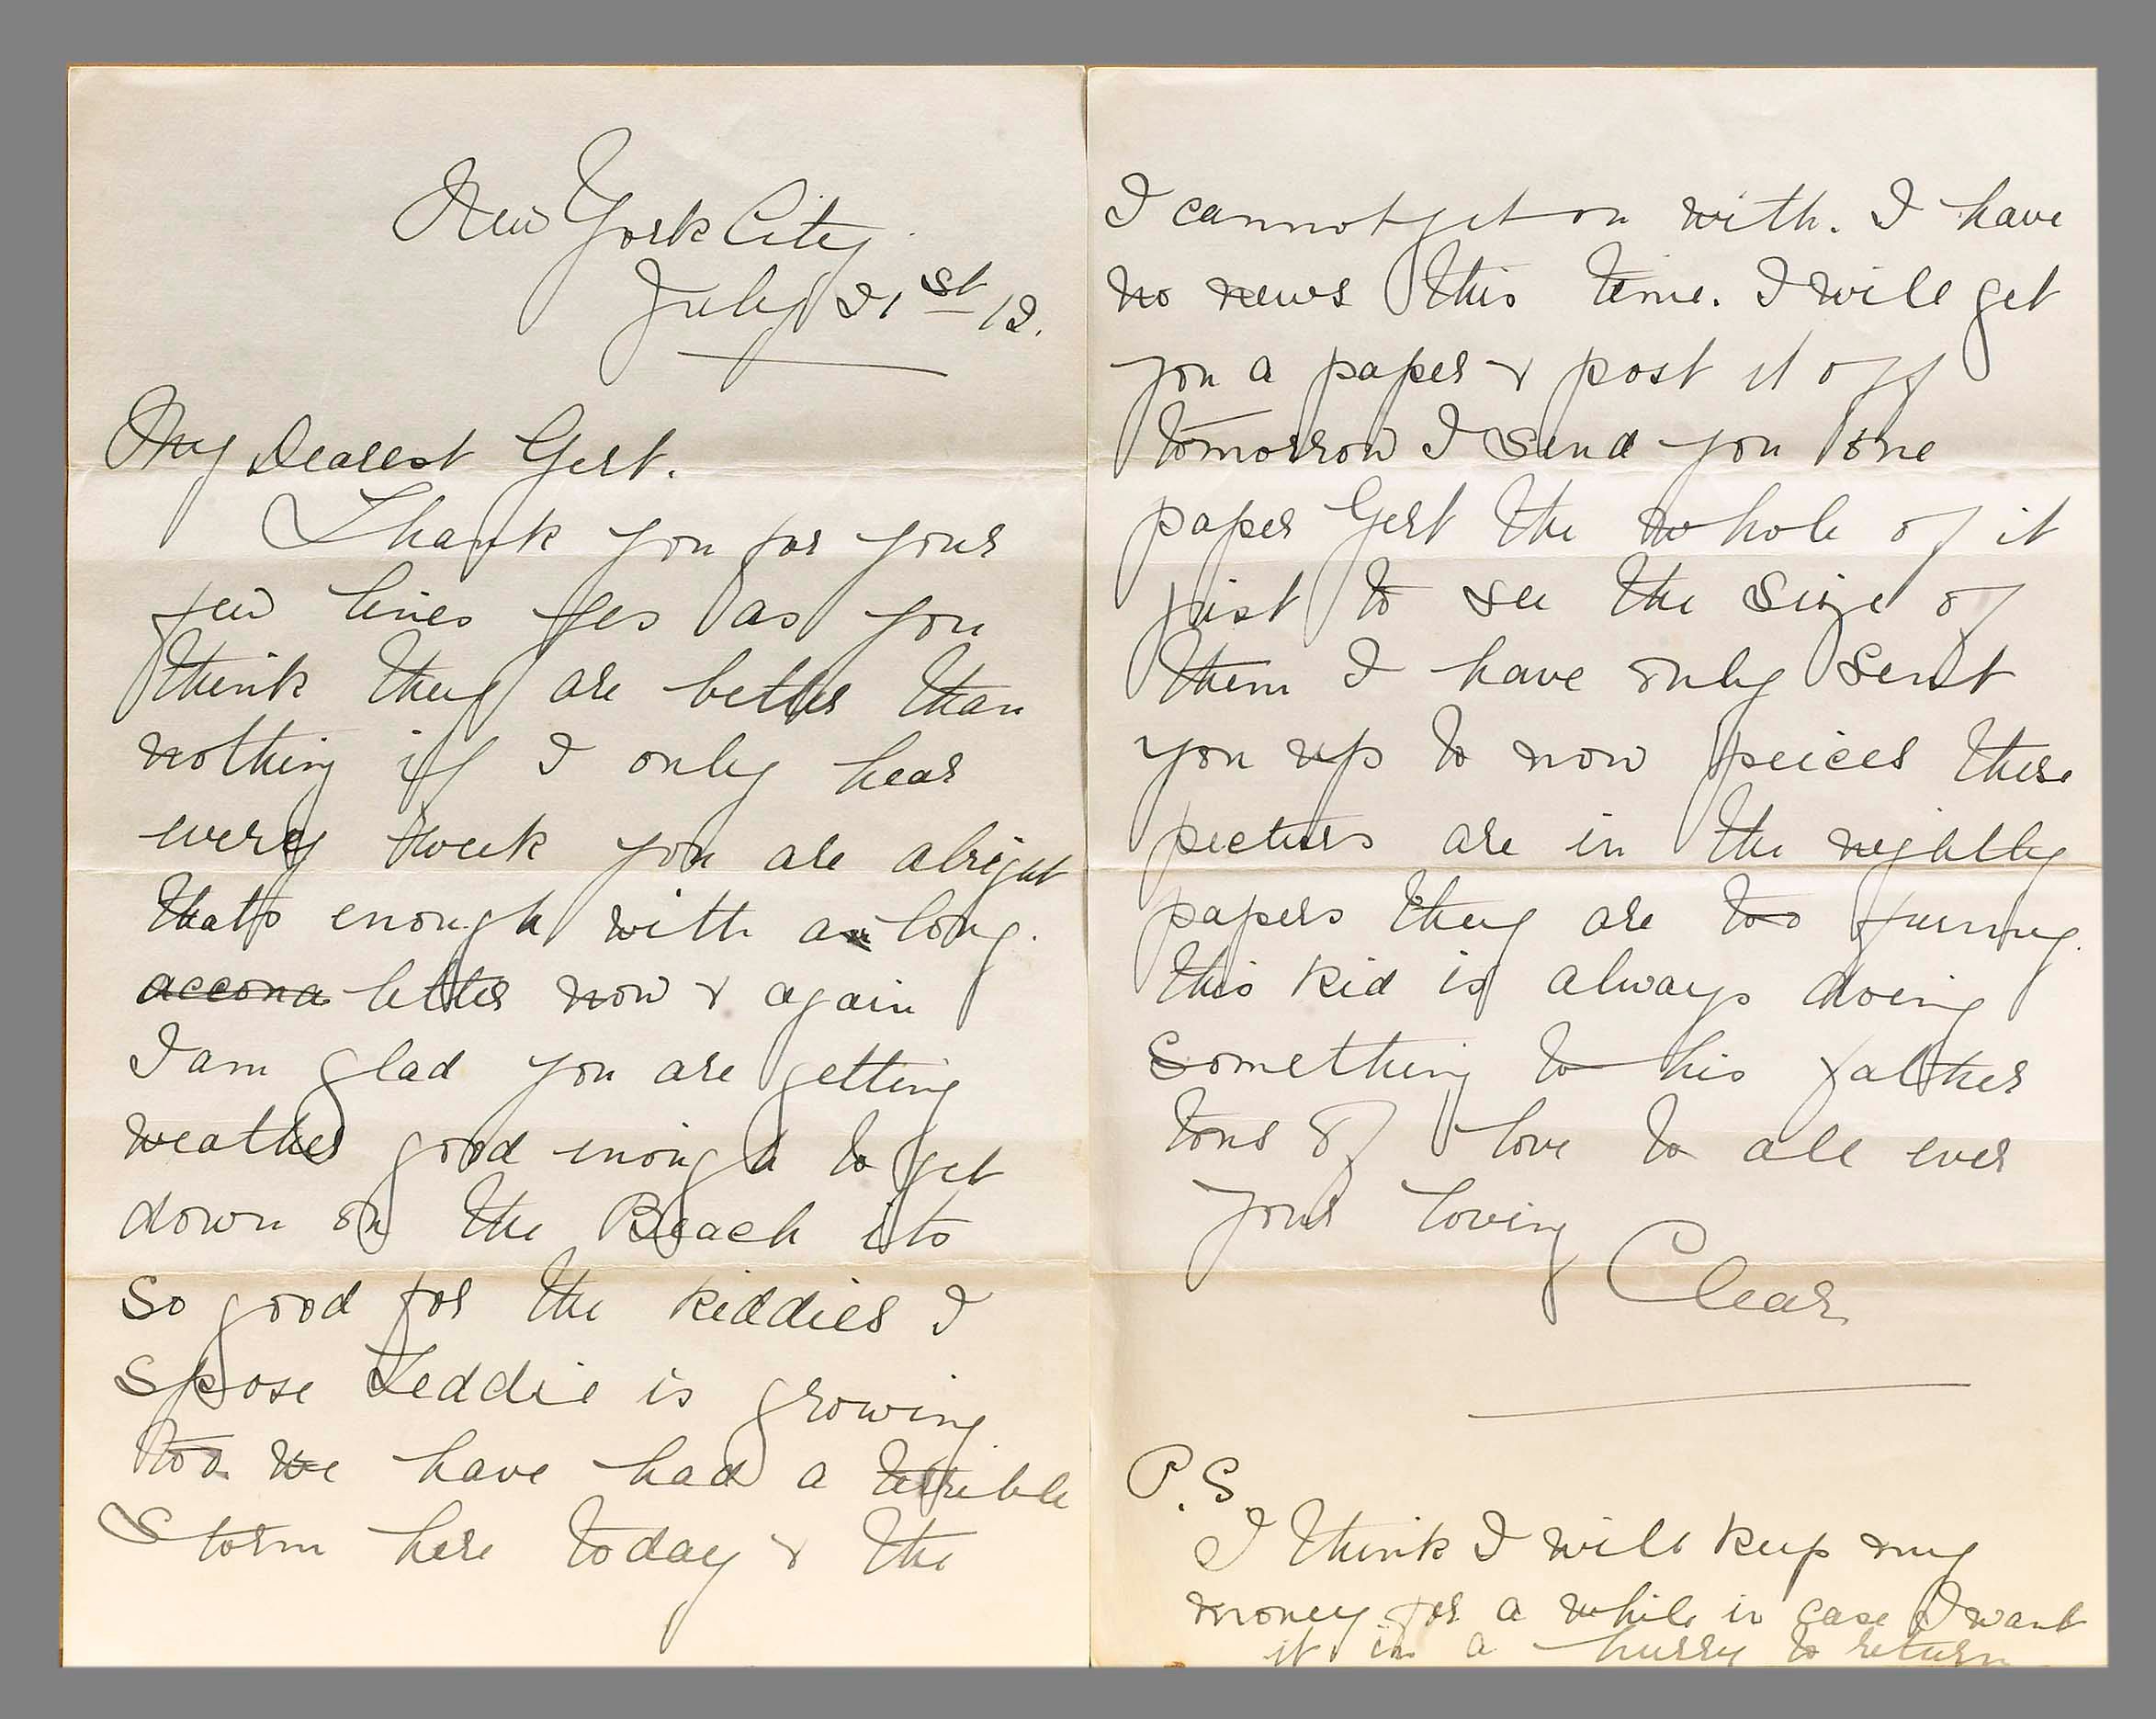 New York City.
July 21st 12.
My Dearest Gert.
Thank you for your
few lines yes as you
think they are better than
nothing if I only hear
every week you are alright
thats enough with a long.
letter now & again
I am glad you are getting
weather good enough to get
down on the Beach its
so good for the kiddies I
spose Teddie is growing
too. We have had a terrible
Storm here today & the
I cannot get on with. I have
no news this time. I will get
you a paper & post it off
tomorrow I send you one
paper Gert the whole of it
just to see the size of
them I have only sent
you up to now peices these
pecturs are in the nightly
papers they are too funny.
this kid is always doing
something to his father
tons of love to all ever
your loving Clear.
P.S.
I think I will keep my
money for a while in case I want
it in a hurry to return